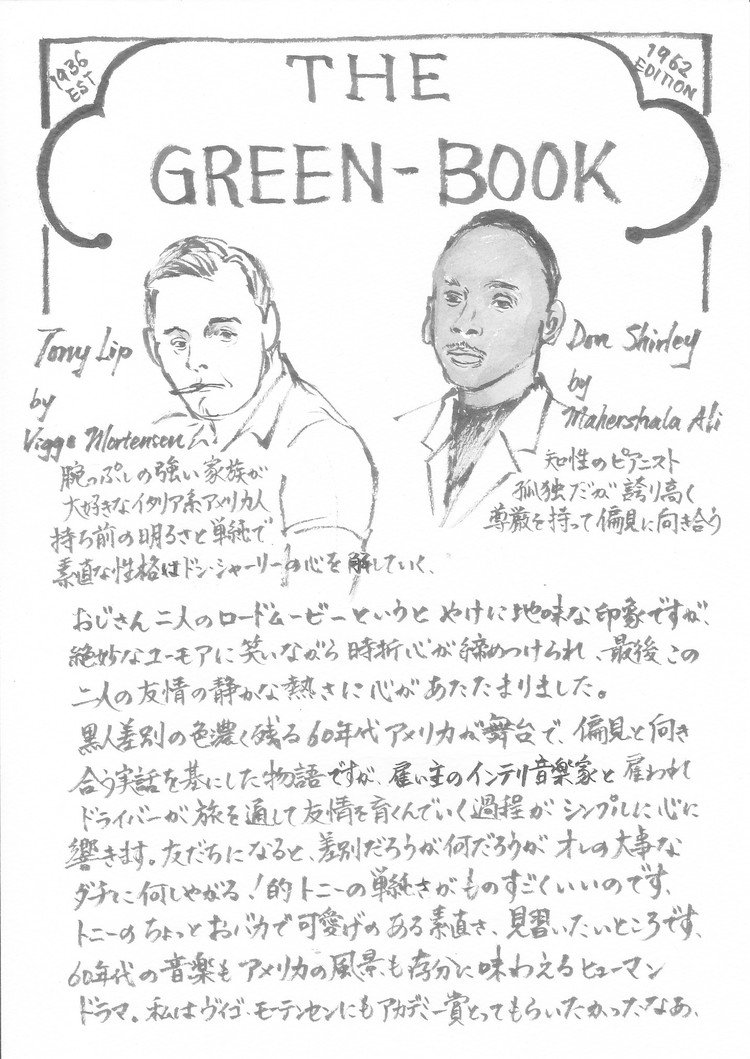 1936
EST
1962
EDITION
THE
GREEN-BOOK
Tony Lip
by
Viggo Mortensen
Don Shirley
by
Mahershala Ali
腕っぷしの強い家族が
大好きなイタリア系アメリカ人
持ち前の明るさと単純で
素直な性格はドン・シャーリーの心を解していく、
知性のピアニスト
孤独だが誇り高く
尊厳を持って偏見に向き合う
おじさん二人のロードムービーというとやけに地味な印象ですが、
絶妙なユーモアに笑いながら時折心が締めつけられ、最後この
二人の友情の静かな熱さに心があたたまりました。
黒人差別の色濃く残る60年代アメリカが舞台で、偏見と向き
合う実話を基にした物語ですが、雇い主のインテリ音楽家と雇われ
ドライバーが旅を通して友情を育くんでいく過程がシンプルに心に
響きます。友だちになると、差別だろうが何だろうがオレの大事な
ダチに何しやがる!的トニーの単純さがものすごくいいのです、
トニーのちょっとおバカで可愛げのある素直さ、見習いたいところです、
60年代の音楽もアメリカの風景も存分に味わえるヒューマン
ドラマ。私はヴィゴ・モーテンセンにもアカデミー賞とってもらいたかったなあ、